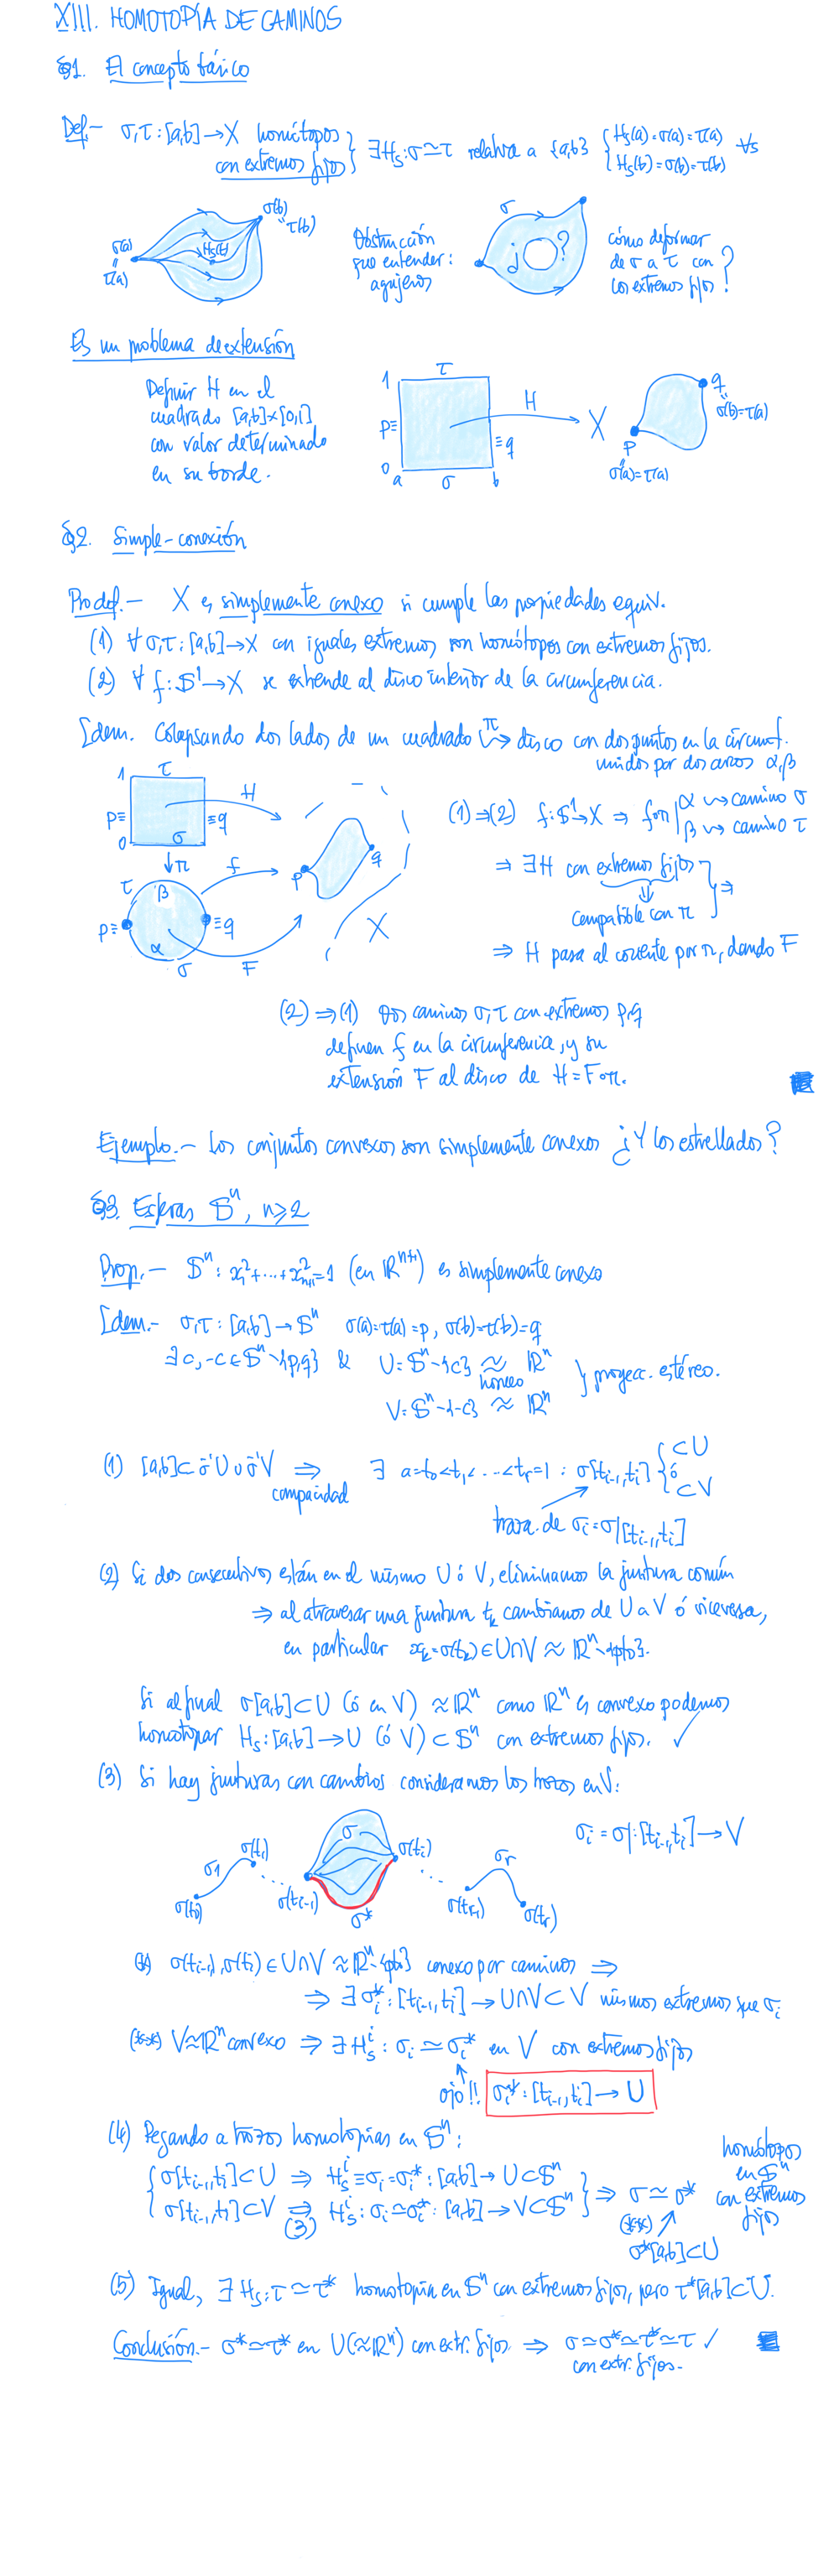 XIII. HOMOTOPÍA DE CAMINOS
§1. El concepto básico
Def.- σ,τ : [a,b] → X homótopos con extremos fijos } ∃ Hₛ : σ ≃ τ relativa a {a,b} { Hₛ(a) = σ(a) = τ(a) Hₛ(b) = σ(b) = τ(b) ∀s
σ(a) = τ(a) Hₛ(t) σ(b) = τ(b)
Obstrucción que entender: agujeros
σ ¿ ?
cómo deformar de σ a τ con los extremos fijos?
Es un problema de extensión
Definir H en el cuadrado [a,b]×[0,1] con valor determinado en su borde.
1 τ p≡ ≡q 0 a σ b H X p σ(a)=τ(a) q σ(b)=τ(b)
§2. Simple-conexión
Prodef.- X es simplemente conexo si cumple las propiedades equiv.
(1) ∀ σ,τ : [a,b] → X con iguales extremos son homótopos con extremos fijos.
(2) ∀ f : 𝕊¹ → X se extiende al disco interior de la circunferencia.
Dem. Colapsando dos lados de un cuadrado π⇝ disco con dos puntos en la circunf.
unidos por dos arcos α,β
1 τ p≡ ≡q 0 σ H
↓π f
τ β p≡ ≡q α σ F p q X
(1)⇒(2) f : 𝕊¹ → X ⇒ f∘π | α ⇝ camino σ β ⇝ camino τ
⇒ ∃H con extremos fijos
⇓ compatible con π } ⇒
⇒ H pasa al cociente por π, dando F
(2)⇒(1) Dos caminos σ,τ con extremos p,q
definen f en la circunferencia, y su
extensión F al disco da H = F∘π.
Ejemplo.- Los conjuntos convexos son simplemente conexos ¿Y los estrellados?
§3. Esferas 𝕊ⁿ, n≥2
Prop.- 𝕊ⁿ : x₁²+⋯+x²ₙ₊₁=1 (en ℝⁿ⁺¹) es simplemente conexo
Dem.- σ,τ : [a,b] → 𝕊ⁿ σ(a)=τ(a)=p, σ(b)=τ(b)=q
∃ c,-c ∈ 𝕊ⁿ\{p,q} & U=𝕊ⁿ-{c} ≈ homeo ℝⁿ
V=𝕊ⁿ-{-c} ≈ ℝⁿ } proyec. estéreo.
(1) [a,b] ⊂ σ⁻¹U ∪ σ⁻¹V ⇒ compacidad ∃ a=t₀<t₁<…<tᵣ=1 : σ[tᵢ₋₁,tᵢ] { ⊂U ó ⊂V
traza de σᵢ=σ|[tᵢ₋₁,tᵢ]
(2) Si dos consecutivos están en el mismo U ó V, eliminamos la juntura común
⇒ al atravesar una juntura tₖ cambiamos de U a V ó viceversa,
en particular xₖ=σ(tₖ) ∈ U∩V ≈ ℝⁿ\{pto}.
Si al final σ[a,b] ⊂ U (ó en V) ≈ ℝⁿ como ℝⁿ es convexo podemos
homotopar Hₛ : [a,b] → U (ó V) ⊂ 𝕊ⁿ con extremos fijos. ✓
(3) Si hay junturas con cambios consideramos los trozos en V:
σᵢ = σ| : [tᵢ₋₁,tᵢ] → V
σ(t₀) σ₁ σ(t₁) … σ(tᵢ₋₁) σ σ* σ(tᵢ) … σ(tᵣ₋₁) σᵣ σ(tᵣ)
(*) σ(tᵢ₋₁),σ(tᵢ) ∈ U∩V ≈ ℝⁿ-{pto} conexo por caminos ⇒
⇒ ∃ σᵢ* : [tᵢ₋₁,tᵢ] → U∩V ⊂ V mismos extremos que σᵢ
(**) V≈ℝⁿ convexo ⇒ ∃ Hₛⁱ : σᵢ ≃ σᵢ* en V con extremos fijos
ojo!! σᵢ* : [tᵢ₋₁,tᵢ] → U
(4) Pegando a trozos homotopías en 𝕊ⁿ:
{ σ[tᵢ₋₁,tᵢ] ⊂ U ⇒ Hₛⁱ ≡ σᵢ = σᵢ* : [a,b] → U ⊂ 𝕊ⁿ
σ[tᵢ₋₁,tᵢ] ⊂ V ⇒ (3) Hₛⁱ : σᵢ ≃ σᵢ* : [a,b] → V ⊂ 𝕊ⁿ } ⇒ σ ≃ σ* homótopos en 𝕊ⁿ con extremos fijos
(**) σ*[a,b] ⊂ U
(5) Igual, ∃ Hₛ : τ ≃ τ* homotopía en 𝕊ⁿ con extremos fijos, pero τ*[a,b] ⊂ U.
Conclusión.- σ* ≃ τ* en U (≈ℝⁿ) con extr. fijos ⇒ σ ≃ σ* ≃ τ* ≃ τ ✓
con extr. fijos.